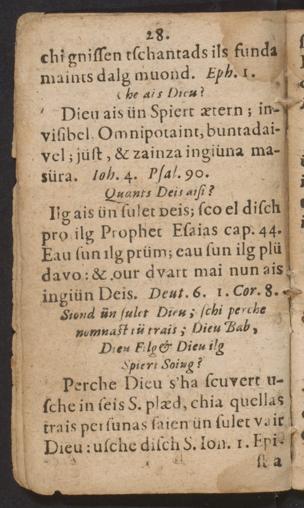 28.
chi gnissen tschantads ils funda
maints dalg muond. Eph. 1.
Che ais Dieu?
Dieu ais ün Spiert ætern; in-
visibel. Omnipotaint, buntadai-
vel; jüst, & zainza ingiüna ma-
süra. Ioh. 4. Psal. 90.
Quants Deis aisi?
Ilg ais ün sulet Deis; sco el disch
pro ilg Prophet Esaias cap. 44.
Eau sun ilg prüm; eau sun ilg plü
davo: & our dvart mai nun ais
ingiün Deis. Deut. 6. 1. Cor. 8.
Siond ün sulet Dieu; schi perche
nomnast tü trais; Dieu Bab,
Dieu Filg & Dieu ilg
Spiert Soing?
Perche Dieu s'ha scuvert u-
sche in seis S. plæd, chia quellas
trais persunas saien ün sulet vair
Dieu: usche disch S. Ioh. 1. Epi-
sta